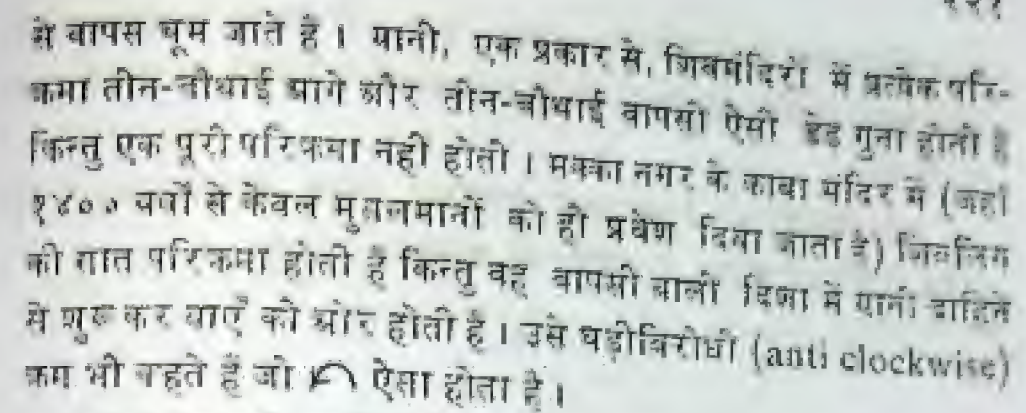 २२१
से वापस घूम जाते हैं । यानी, एक प्रकार से, शिवमंदिरों में प्रत्येक परि-
क्रमा तीन-चौथाई आगे और तीन-चौथाई वापसी ऐसी डेढ़ गुना होती है
किन्तु एक पूरी परिक्रमा नहीं होती । मक्का नगर के काबा मंदिर में (जहाँ
१४०० वर्षों से केवल मुसलमानों को ही प्रवेश दिया जाता है) शिवलिंग
की सात परिक्रमा होती है किन्तु वह वापसी वाली दिशा में यानी दाहिने
से शुरू कर बाएँ की ओर होती है । उसे घड़ीविरोधी (anti clockwise)
क्रम भी कहते हैं जो ऐसा होता है ।